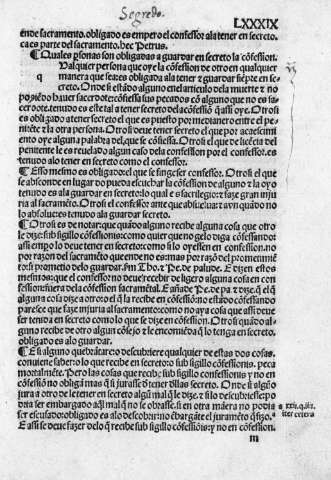 Segredo.
LXXXIX
ende sacramento. obligado es empero el confessor ala tener en secreto.
ca es parte del sacramento. hec Petrus.
¶ Quales psonas son obligadas a guardar en secreto la cõfession.
Qualquier persona que oye la cõfession de otro en qualquier
q manera que sea: es obligada ala tener z guardar siẽpre en se-
creto. Onde si estãdo alguno en el articulo dela muerte z no
podiẽdo hauer sacerdote: cõfiessa sus pecados cõ alguno que no es sa
cerdote. tenudo es este tal a tener secreto dela cõfessiõ q̃ assi oye. Otrosi
es obligado a tener secreto el que es puesto por medianero entre el pe-
nitẽte z la otra persona. Otrosi deue tener secreto el que por acaescimi
ento oye alguna palabra del, que se cõfiessa. Otrosi el que de licẽcia del
penitente le es reuelado algun caso dela confession por el confessor. es
tenudo alo tener en secreto como el confessor.
¶ Esso mesmo es obligado: el que se finge ser confessor. Otrosi el que
se absconde en lugar do pueda escuchar la cõfession de alguno z la oyo
tenudo es ala guardar en secreto: lo qual es sacrilegio: z faze gran inju-
ria al sacramẽto. Otrosi el confessor ante que absuelua: z avn quãdo no
lo absoluio: es tenudo ala guardar secreto.
¶ Otrosi es de notar: que quãdo alguno recibe alguna cosa que otro
le dize: sub sigillo cõfessionis: como quier que no gelo diga cõfessando:
assi empo lo deue tener en secreto: como si lo oyesse en confession. no
por razon del sacramẽto que ende no es: mas por razõ del prometimiẽ
to: si prometio delo guardar. sm Tho. z Pe. de palude. E dizen estos
mesmos: que el confessor no deue recebir de ligero alguna cosa en con
fession: fuera dela cõfession sacramẽtal. E añade Pe. de pa. z dize. q̃ el q̃
alguna cosa dize a otro: o el q̃ la recibe en cõfessiõ: no estãdo cõfessando
paresce que faze injuria al sacramento: como no aya cosa que assi deue
ser tenida en secreto como lo que se dize en cõfession. Otrosi quãdo al-
guno recibe de otro algun cõsejo z le encomiẽda q̃ lo tenga en secreto.
obligado es alo guardar.
¶ E si alguno quebrãtare o descubriere qualquier de estas dos cosas.
conuiene saber: lo que recibe en secreto: o sub sigillo cõfessionis. peca
mortalmẽte. Pero las cosas que recibe sub sigillo confessionis y no en
cõfessiõ no obligã mas q̃ si jurasse ò tener dllas secreto. Onde si algũo
jura a otro de le tener en secreto algũ mal q̃ le dize. z si lo descubriesse po
dria ser embargado aq̃l mal q̃ no se obrasse. si en otra mãera no podia
ser escusado: obligado es alo descobrir: no ẽbargãte el juramẽto q̃ fizo.
E assi se deue fazer delo q̃ recibe sub sigillo cõfessiõis: y no en cõfession.
m